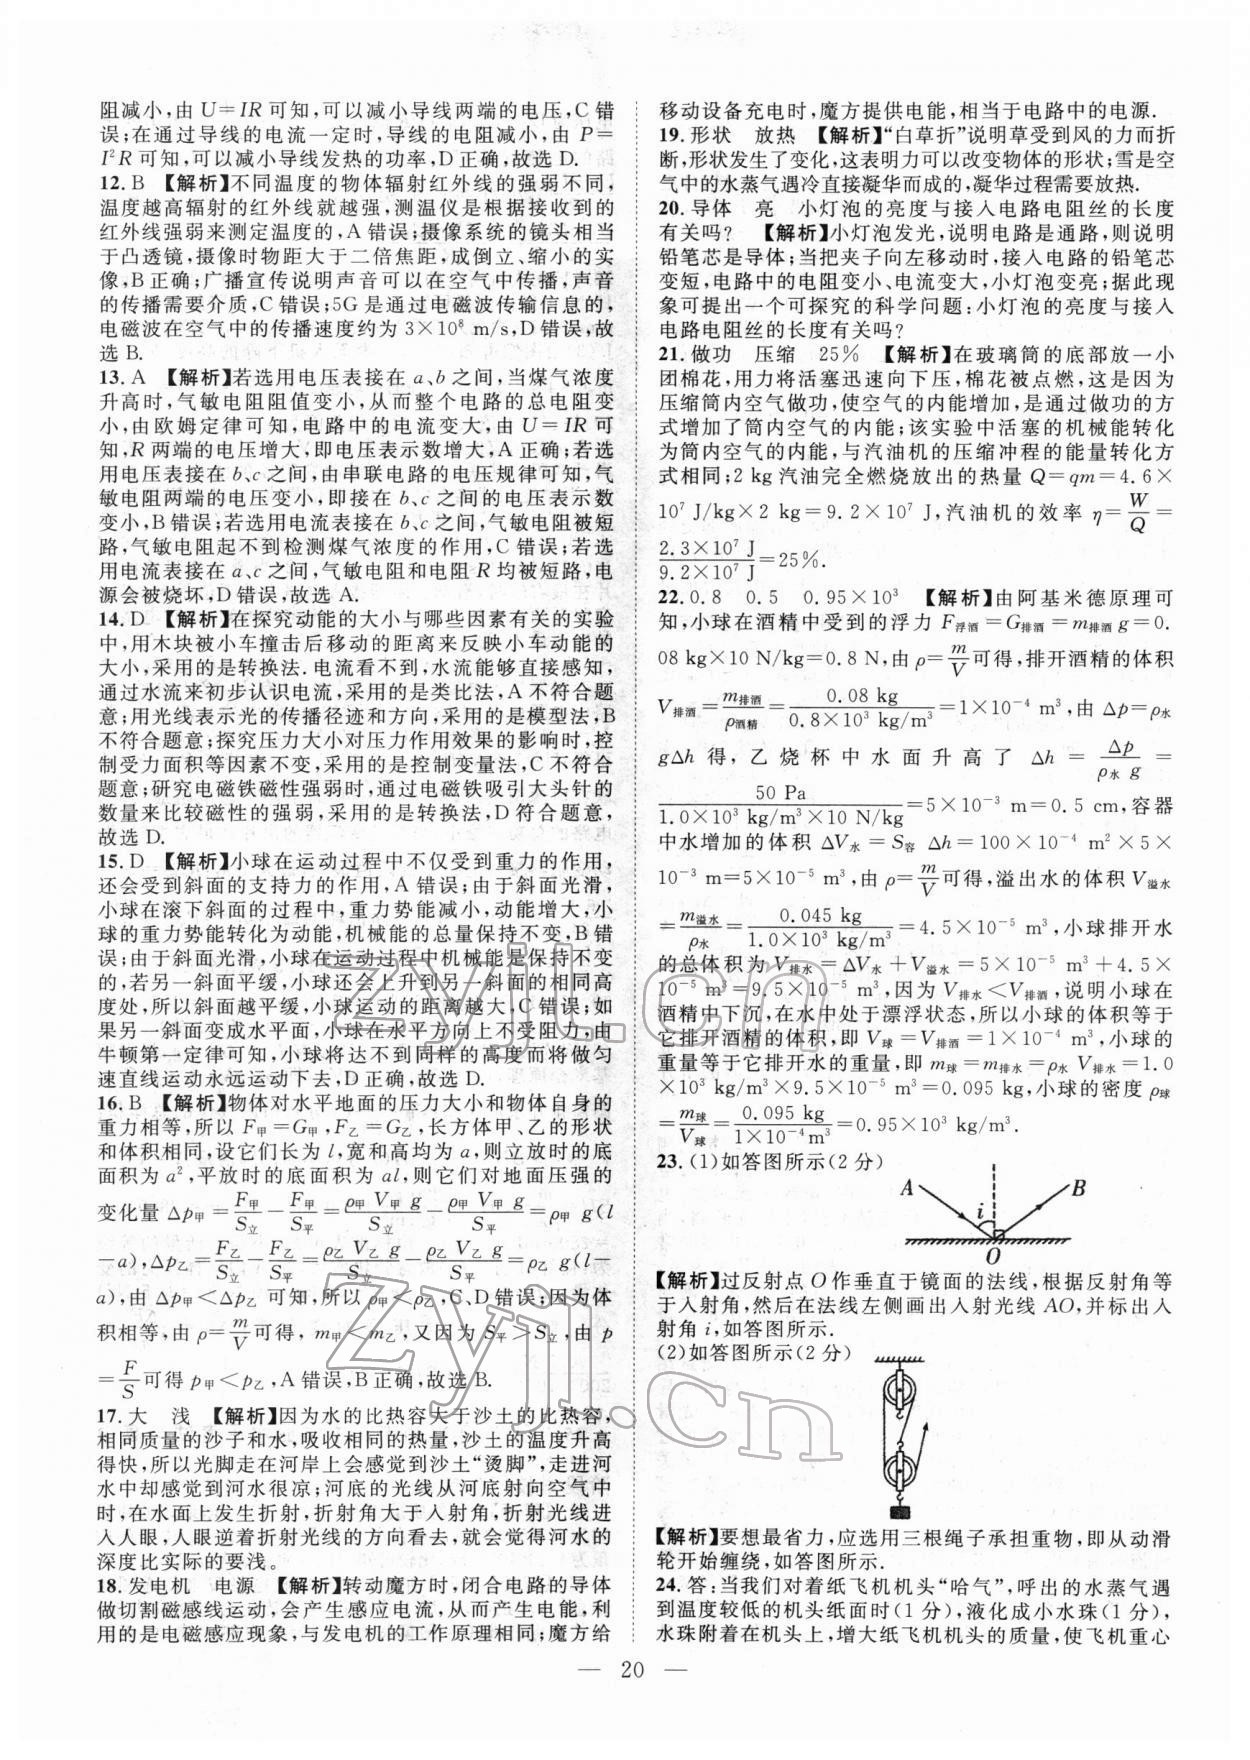 阻减小,由 U=IR 可知,可以减小导线两端的电压,C 错
误;在通过导线的电流一定时,导线的电阻减小,由 P=
I²R 可知,可以减小导线发热的功率,D 正确,故选 D.
12. B 【解析】不同温度的物体辐射红外线的强弱不同,
温度越高辐射的红外线就越强,测温仪是根据接收到的
红外线强弱来测定温度的,A 错误;摄像系统的镜头相当
于凸透镜,摄像时物距大于二倍焦距,成倒立、缩小的实
像,B 正确;广播宣传说明声音可以在空气中传播,声音
的传播需要介质,C 错误;5G 是通过电磁波传输信息的,
电磁波在空气中的传播速度约为 3×10⁸ m/s,D 错误,故
选 B.
13. A 【解析】若选用电压表接在 a、b 之间,当煤气浓度
升高时,气敏电阻阻值变小,从而整个电路的总电阻变
小,由欧姆定律可知,电路中的电流变大,由 U=IR 可
知,R 两端的电压增大,即电压表示数增大,A 正确;若选
用电压表接在 b、c 之间,由串联电路的电压规律可知,气
敏电阻两端的电压变小,即接在 b、c 之间的电压表示数
变小,B 错误;若选用电流表接在 b、c 之间,气敏电阻被短
路,气敏电阻起不到检测煤气浓度的作用,C 错误;若选
用电流表接在 a、c 之间,气敏电阻和电阻 R 均被短路,电
源会被烧坏,D 错误,故选 A.
14. D 【解析】在探究动能的大小与哪些因素有关的实验
中,用木块被小车撞击后移动的距离来反映小车动能的
大小,采用的是转换法. 电流看不到,水流能够直接感知,
通过水流来初步认识电流,采用的是类比法,A 不符合题
意;用光线表示光的传播径迹和方向,采用的是模型法,B
不符合题意;探究压力大小对压力作用效果的影响时,控
制受力面积等因素不变,采用的是控制变量法,C 不符合
题意;研究电磁铁磁性强弱时,通过电磁铁吸引大头针的
数量来比较磁性的强弱,采用的是转换法,D 符合题意,
故选 D.
15. D 【解析】小球在运动过程中不仅受到重力的作用,
还会受到斜面的支持力的作用,A 错误;由于斜面光滑,
小球在滚下斜面的过程中,重力势能减小,动能增大,小
球的重力势能转化为动能,机械能的总量保持不变,B 错
误;由于斜面光滑,小球在运动过程中机械能是保持不变
的,若另一斜面平缓,小球还会上升到另一斜面的相同高
度处,所以斜面越平缓,小球运动的距离越大,C 错误;如
果另一斜面变成水平面,小球在水平方向上不受阻力,由
牛顿第一定律可知,小球将达不到同样的高度而将做匀
速直线运动永远运动下去,D 正确,故选 D.
16. B 【解析】物体对水平地面的压力大小和物体自身的
重力相等,所以 F甲=G甲,F乙=G乙,长方体甲、乙的形状
和体积相同,设它们长为 l,宽和高均为 a,则立放时的底
面积为 a²,平放时的底面积为 al,则它们对地面压强的
变化量 Δp甲=F甲/S立−F甲/S平=ρ甲V甲g/S立−ρ甲V甲g/S平=ρ甲g(l
−a),Δp乙=F乙/S立−F乙/S平=ρ乙V乙g/S立−ρ乙V乙g/S平=ρ乙g(l−
a),由 Δp甲<Δp乙 可知,所以 ρ甲<ρ乙,C、D 错误;因为体
积相等,由 ρ=m/V可得,m甲<m乙,又因为 S平>S立,由 p
=F/S可得 p甲<p乙,A 错误,B 正确,故选 B.
17. 大 浅 【解析】因为水的比热容大于沙土的比热容,
相同质量的沙子和水,吸收相同的热量,沙土的温度升高
得快,所以光脚走在河岸上会感觉到沙土“烫脚”,走进河
水中却感觉到河水很凉;河底的光线从河底射向空气中
时,在水面上发生折射,折射角大于入射角,折射光线进
入人眼,人眼逆着折射光线的方向看去,就会觉得河水的
深度比实际的要浅。
18. 发电机 电源 【解析】转动魔方时,闭合电路的导体
做切割磁感线运动,会产生感应电流,从而产生电能,利
用的是电磁感应现象,与发电机的工作原理相同;魔方给
移动设备充电时,魔方提供电能,相当于电路中的电源.
19. 形状 放热 【解析】“白草折”说明草受到风的力而折
断,形状发生了变化,这表明力可以改变物体的形状;雪是空
气中的水蒸气遇冷直接凝华而成的,凝华过程需要放热.
20. 导体 亮 小灯泡的亮度与接入电路电阻丝的长度
有关吗? 【解析】小灯泡发光,说明电路是通路,则说明
铅笔芯是导体;当把夹子向左移动时,接入电路的铅笔芯
变短,电路中的电阻变小、电流变大,小灯泡变亮;据此现
象可提出一个可探究的科学问题:小灯泡的亮度与接入
电路电阻丝的长度有关吗?
21. 做功 压缩 25% 【解析】在玻璃筒的底部放一小
团棉花,用力将活塞迅速向下压,棉花被点燃,这是因为
压缩筒内空气做功,使空气的内能增加,是通过做功的方
式增加了筒内空气的内能;该实验中活塞的机械能转化
为筒内空气的内能,与汽油机的压缩冲程的能量转化方
式相同;2 kg 汽油完全燃烧放出的热量 Q=qm=4.6×
10⁷ J/kg×2 kg=9.2×10⁷ J,汽油机的效率 η=W/Q=
2.3×10⁷ J/9.2×10⁷ J=25%.
22. 0.8 0.5 0.95×10³ 【解析】由阿基米德原理可
知,小球在酒精中受到的浮力 F浮酒=G排酒=m排酒g=0.
08 kg×10 N/kg=0.8 N,由 ρ=m/V可得,排开酒精的体积
V排酒=m排酒/ρ酒精=0.08 kg/0.8×10³ kg/m³=1×10⁻⁴ m³,由 Δp=ρ水
gΔh 得,乙烧杯中水面升高了 Δh=Δp/ρ水g=
50 Pa/1.0×10³ kg/m³×10 N/kg=5×10⁻³ m=0.5 cm,容器
中水增加的体积 ΔV水=S容Δh=100×10⁻⁴ m²×5×
10⁻³ m=5×10⁻⁵ m³,由 ρ=m/V可得,溢出水的体积 V溢水
=m溢水/ρ水=0.045 kg/1.0×10³ kg/m³=4.5×10⁻⁵ m³,小球排开水
的总体积为 V排水=ΔV水+V溢水=5×10⁻⁵ m³+4.5×
10⁻⁵ m³=9.5×10⁻⁵ m³,因为 V排水<V排酒,说明小球在
酒精中下沉,在水中处于漂浮状态,所以小球的体积等于
它排开酒精的体积,即 V球=V排酒=1×10⁻⁴ m³,小球的
重量等于它排开水的重量,即 m球=m排水=ρ水V排水=1.0
×10³ kg/m³×9.5×10⁻⁵ m³=0.095 kg,小球的密度 ρ球
=m球/V球=0.095 kg/1×10⁻⁴m³=0.95×10³ kg/m³.
23. (1)如答图所示(2 分)
A
B
i
O
【解析】过反射点 O 作垂直于镜面的法线,根据反射角等
于入射角,然后在法线左侧画出入射光线 AO,并标出入
射角 i,如答图所示.
(2)如答图所示(2 分)
【解析】要想最省力,应选用三根绳子承担重物,即从动滑
轮开始缠绕,如答图所示.
24. 答:当我们对着纸飞机机头“哈气”,呼出的水蒸气遇
到温度较低的机头纸面时(1 分),液化成小水珠(1 分),
水珠附着在机头上,增大纸飞机机头的质量,使飞机重心
— 20 —
zyjl.cn
zyjl.cn